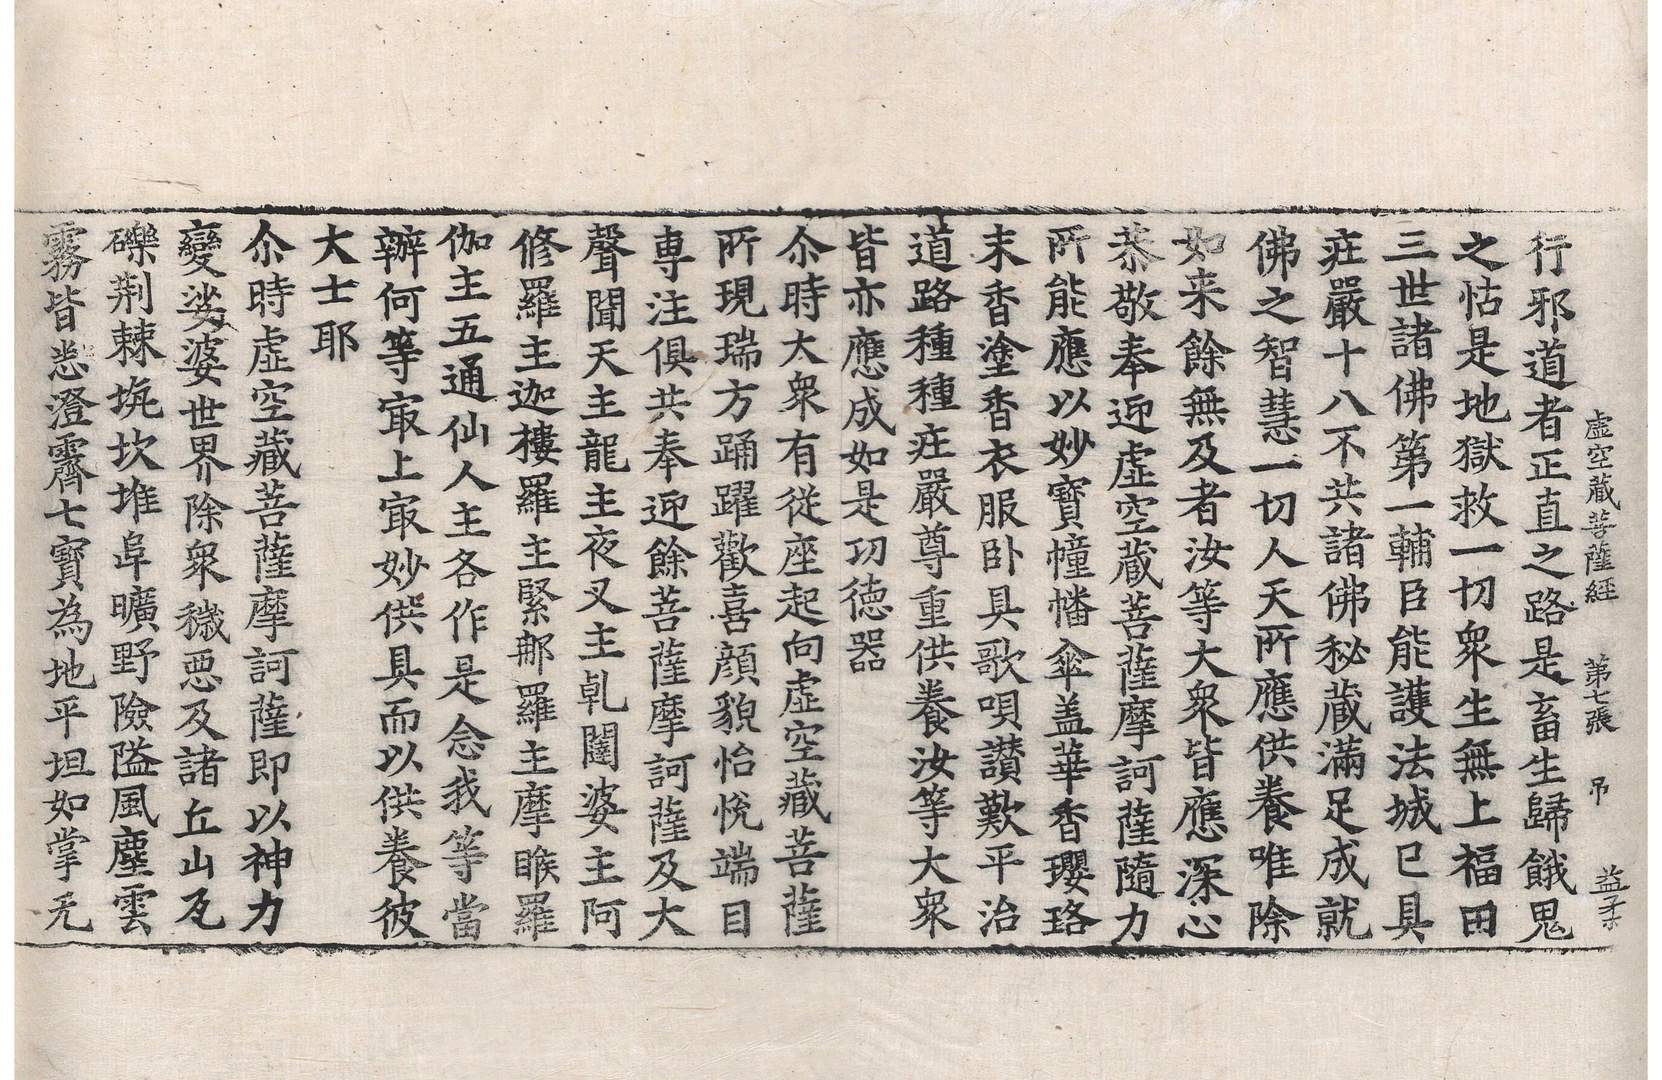 虛空藏菩薩經 第七張 弔 益子
行邪道者正直之路是畜生歸餓鬼
之怙是地獄救一切衆生無上福田
三世諸佛第一輔臣能護法城已具
莊嚴十八不共諸佛秘藏滿足成就
佛之智慧一切人天所應供養唯除
如来餘無及者汝等大衆皆應深心
恭敬奉迎虛空藏菩薩摩訶薩隨力
所能應以妙寶幢幡傘盖華香瓔珞
末香塗香衣服卧具歌唄讃歎平治
道路種種莊嚴尊重供養汝等大衆
皆亦應成如是㓛德器
尒時大衆有從座起向虛空藏菩薩
所現瑞方踊躍歡喜顔貌怡悅端目
專注俱共奉迎餘菩薩摩訶薩及大
聲聞天主龍主夜叉主乹闥婆主阿
修羅主迦樓羅主緊那羅主摩睺羅
伽主五通仙人主各作是念我等當
辦何等㝡上㝡妙供具而以供養彼
大士耶
尒時虛空藏菩薩摩訶薩即以神力
變娑婆世界除衆穢惡及諸丘山瓦
礫荆棘坑坎堆阜曠野險隘風塵雲
霧皆悉澄霽七寶為地平坦如掌无